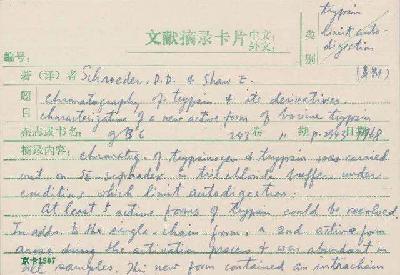 trypsin
limit auto
digestion
文献摘录卡片 中文: 外文:
类别
編号:
著(译)者 Schroeder, D.D. & Shaw E.
题目 Chromatography of trypsin & its derivatives
characterization of a new active form of bovine trypsin
杂志或书名: JBC 243 卷 期 p. 2943 日期 1968
摘录内容: chromatog. of trypsinogen & trypsin was carried
out on SE-sephadex in tris chloride buffers under
conditions which limit autodigestion.
At least active forms of trypsin could be resolved.
In addn. to the single-chain form, a 2nd active form
arose during the activation process & was abundant in
all samples. This new form contained an intrachain
京卡1507